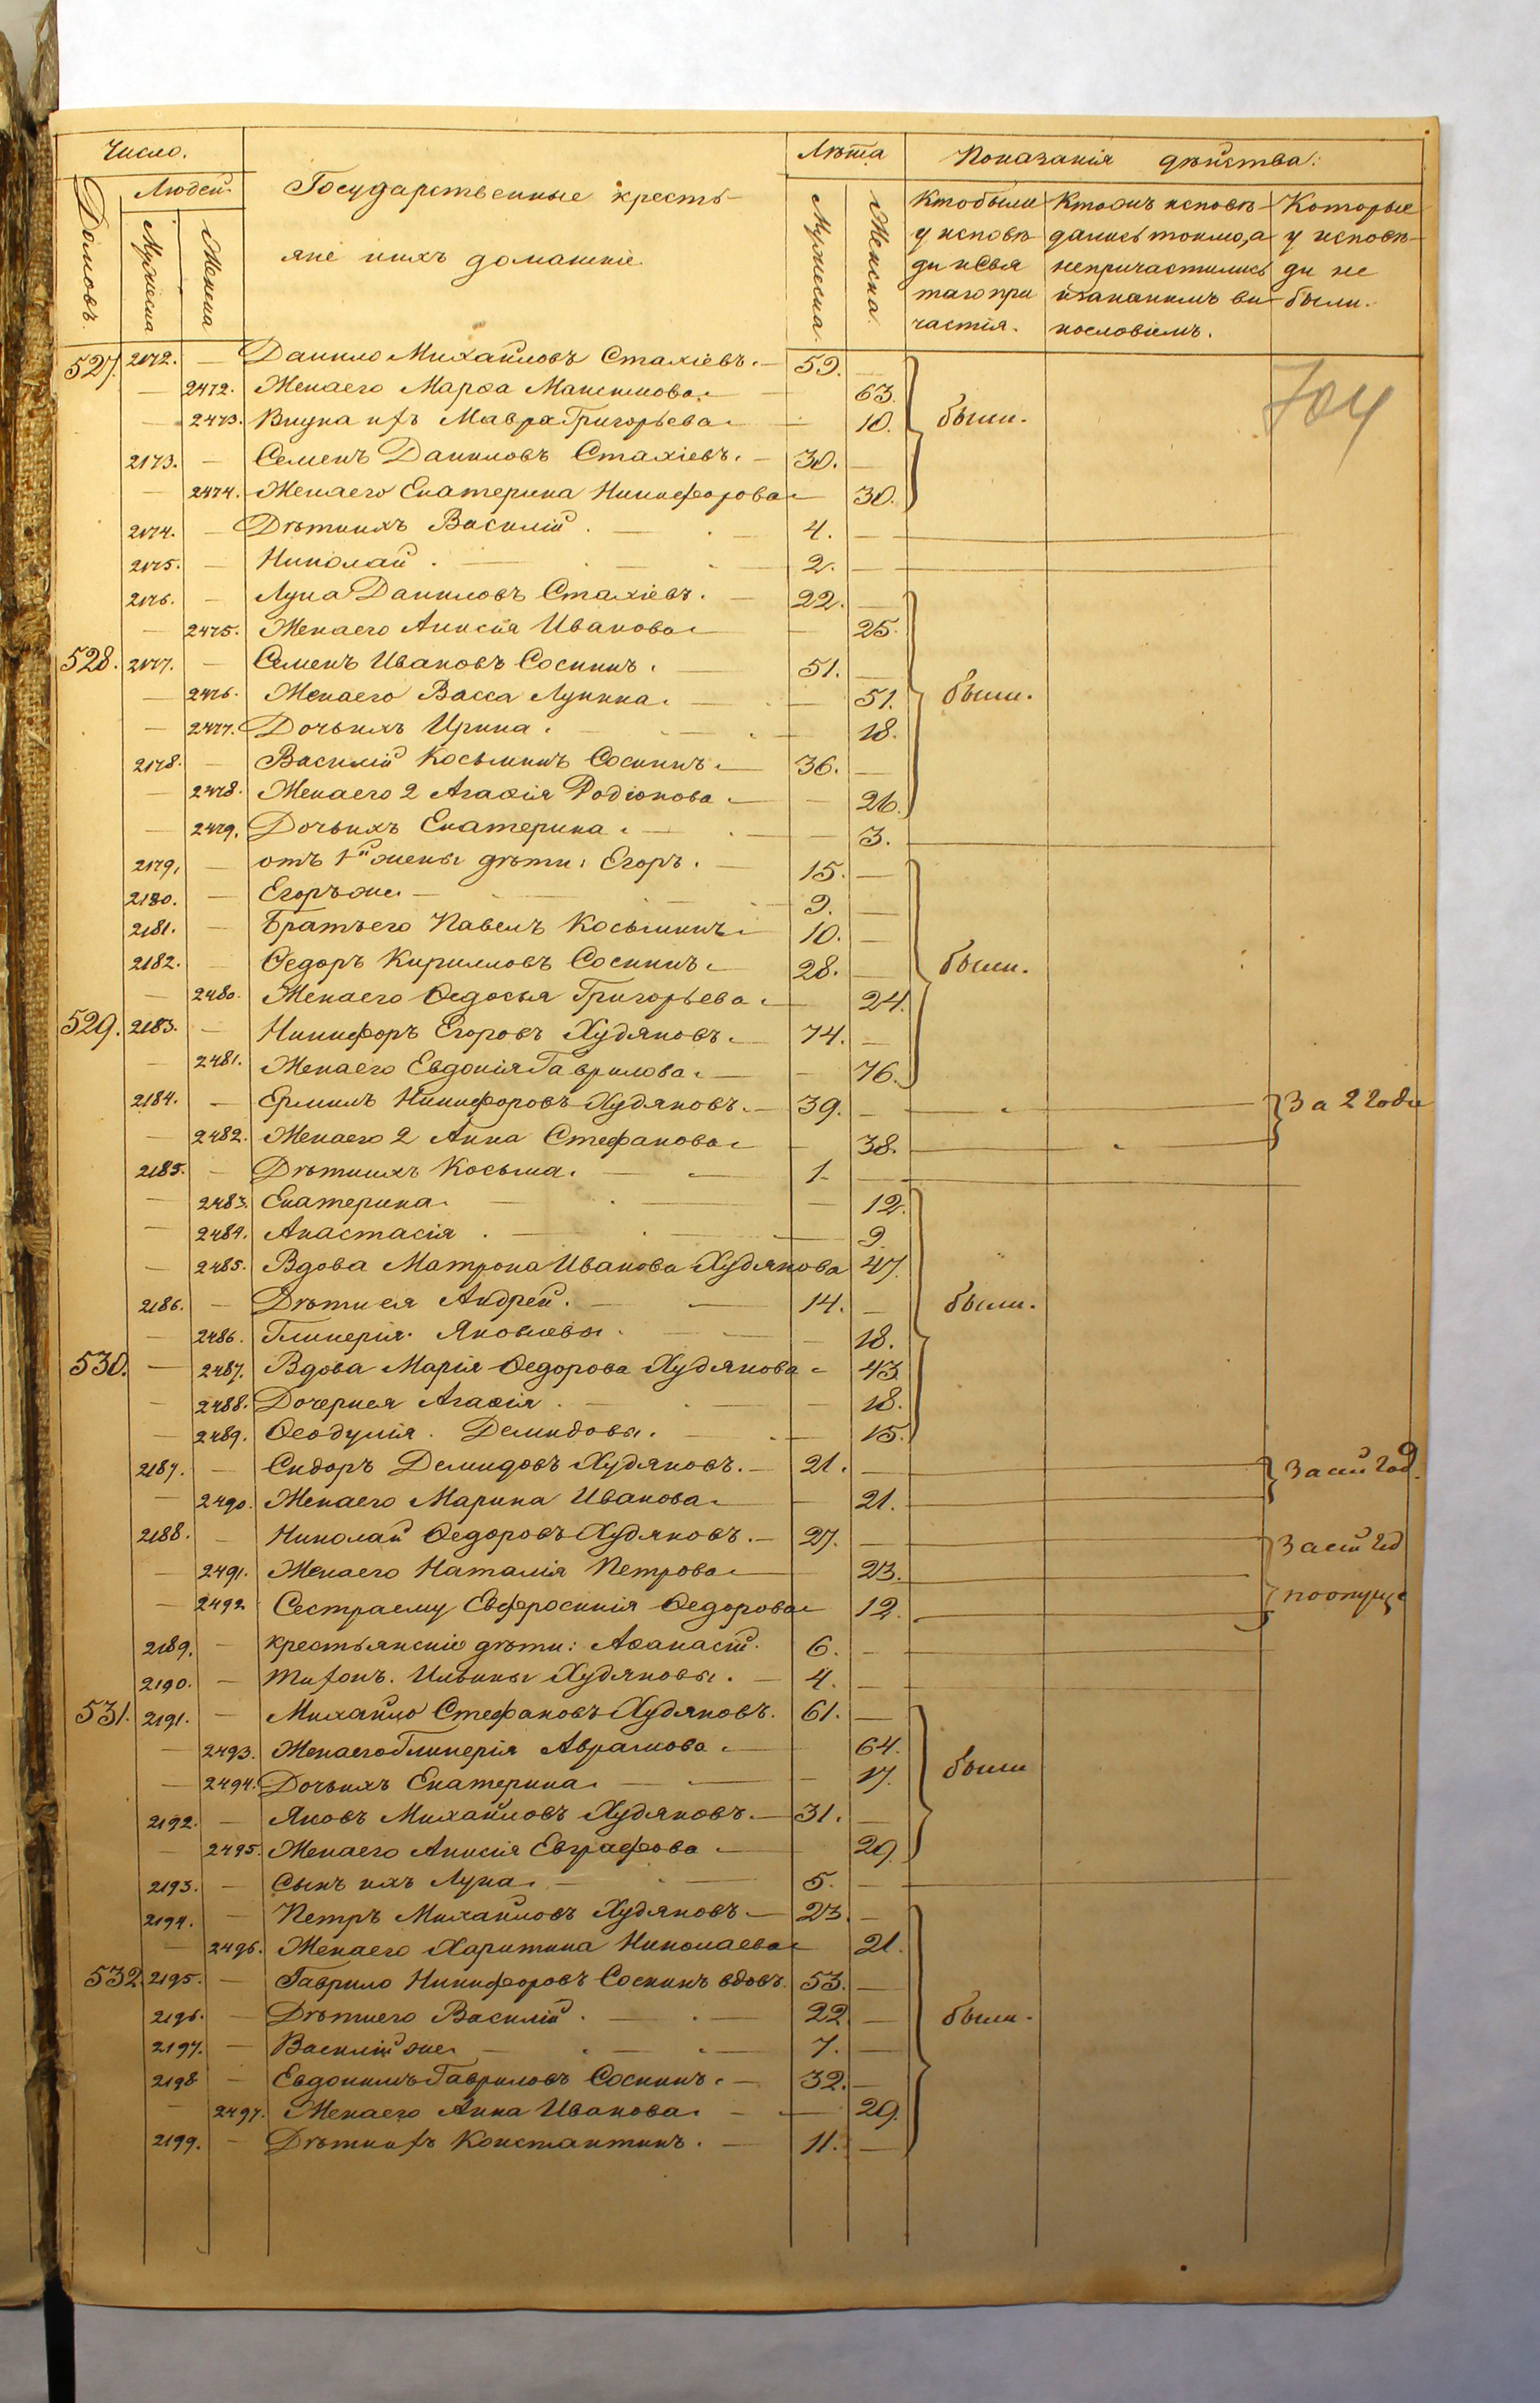 Число. Лѣта Показанія дѣйства:
Домовъ. Людей. Мужеска Женска
Государственные кресть-
яне ихъ домашніе.
Мужеска. Женска.
Кто были у исповѣди и Свя таго при частія.
Кто онъ исповѣ дались токмо, а непричастились и за какимъ ви нословіемъ.
Которые у исповѣ- ди не были.
704
527. 2172. — Данило Михайловъ Стахіевъ. — 59. —
— 2472. Жена его Марѳа Максимова. — 63.
— 2473. Внука ихъ Мавра Григорьева. — 10. были.
2173. — Семенъ Даниловъ Стахіевъ. — 30. —
— 2474. Жена его Екатерина Никифорова — 30.
2174. — Дѣти ихъ Василій. — 4. —
2175. — Николай. — 2. —
2176. — Лука Даниловъ Стахіевъ. — 22. —
— 2475. Жена его Анисія Иванова — 25.
528. 2177. — Семенъ Ивановъ Соснинъ. — 51. —
— 2476. Жена его Васса Лукина. — 51. были.
— 2477. Дочь ихъ Ирина. — 18.
2178. — Василій Косьминъ Соснинъ. — 36. —
— 2478. Жена его 2 Агаѳія Родіонова. — 26.
— 2479. Дочь ихъ Екатерина. — 3.
2179. — отъ 1й жены дѣти: Егоръ. — 15. —
2180. — Егоръ же. — 9. —
2181. — Братъ его Павелъ Косьминъ — 10. —
2182. — Ѳедоръ Кирилловъ Соснинъ. — 28. — были.
— 2480. Жена его Ѳедосья Григорьева. — 24.
529. 2183. — Никифоръ Егоровъ Худяковъ. — 74. —
— 2481. Жена его Евдокія Гаврилова. — 76.
2184. — Ермилъ Никифоровъ Худяковъ. — 39. — За 2 года
— 2482. Жена его 2 Анна Стефанова — 38.
2185. — Дѣти ихъ Косьма. — 1 —
— 2483. Екатерина. — 12.
— 2484. Анастасія. — 9.
— 2485. Вдова Матрона Иванова Худякова 47.
2186. — Дѣти ея Андрей. — 14. — были.
— 2486. Гликерія. Яковлевы. — 18.
530. — 2487. Вдова Марія Ѳедорова Худякова — 43
— 2488. Дочери ея Агаѳія. — 18.
— 2489. Ѳеодулія. Демидовы. — 15.
2187. — Сидоръ Демидовъ Худяковъ. — 21. — За сій год.
— 2490. Жена его Марина Иванова. — 21.
2188. — Николай Ѳедоровъ Худяковъ. — 27. — За сій год
— 2491. Жена его Наталія Петрова — 23.
— 2492 Сестра ему Евфросинія Ѳедорова 12.
2189. — крестьянскіе дѣти: Аѳанасій. 6. —
2190. — Тихонъ. Ильины Худяковы. — 4. —
531. 2191. — Михайло Стефановъ Худяковъ. 61. —
— 2493. Жена его Гликерія Аврамова. — 64.
— 2494. Дочь ихъ Екатерина. — 17. были
2192. — Яковъ Михайловъ Худяковъ. — 31. —
— 2495. Жена его Анисія Евграфова — 29.
2193. — Сынъ ихъ Лука. — 5. —
2194. — Петръ Михайловъ Худяковъ — 23. —
— 2496. Жена его Харитина Николаева 21.
532. 2195. — Гаврило Никифоровъ Соснинъ вдовъ. 53. —
2196. — Дѣти его Василій. — 22 — были.
2197. — Василій же — 7. —
2198 — Евдокимъ Гавриловъ Соснинъ. — 32. —
— 2497. Жена его Анна Иванова. — 29.
2199. — Дѣти ихъ Константинъ. — 11. —